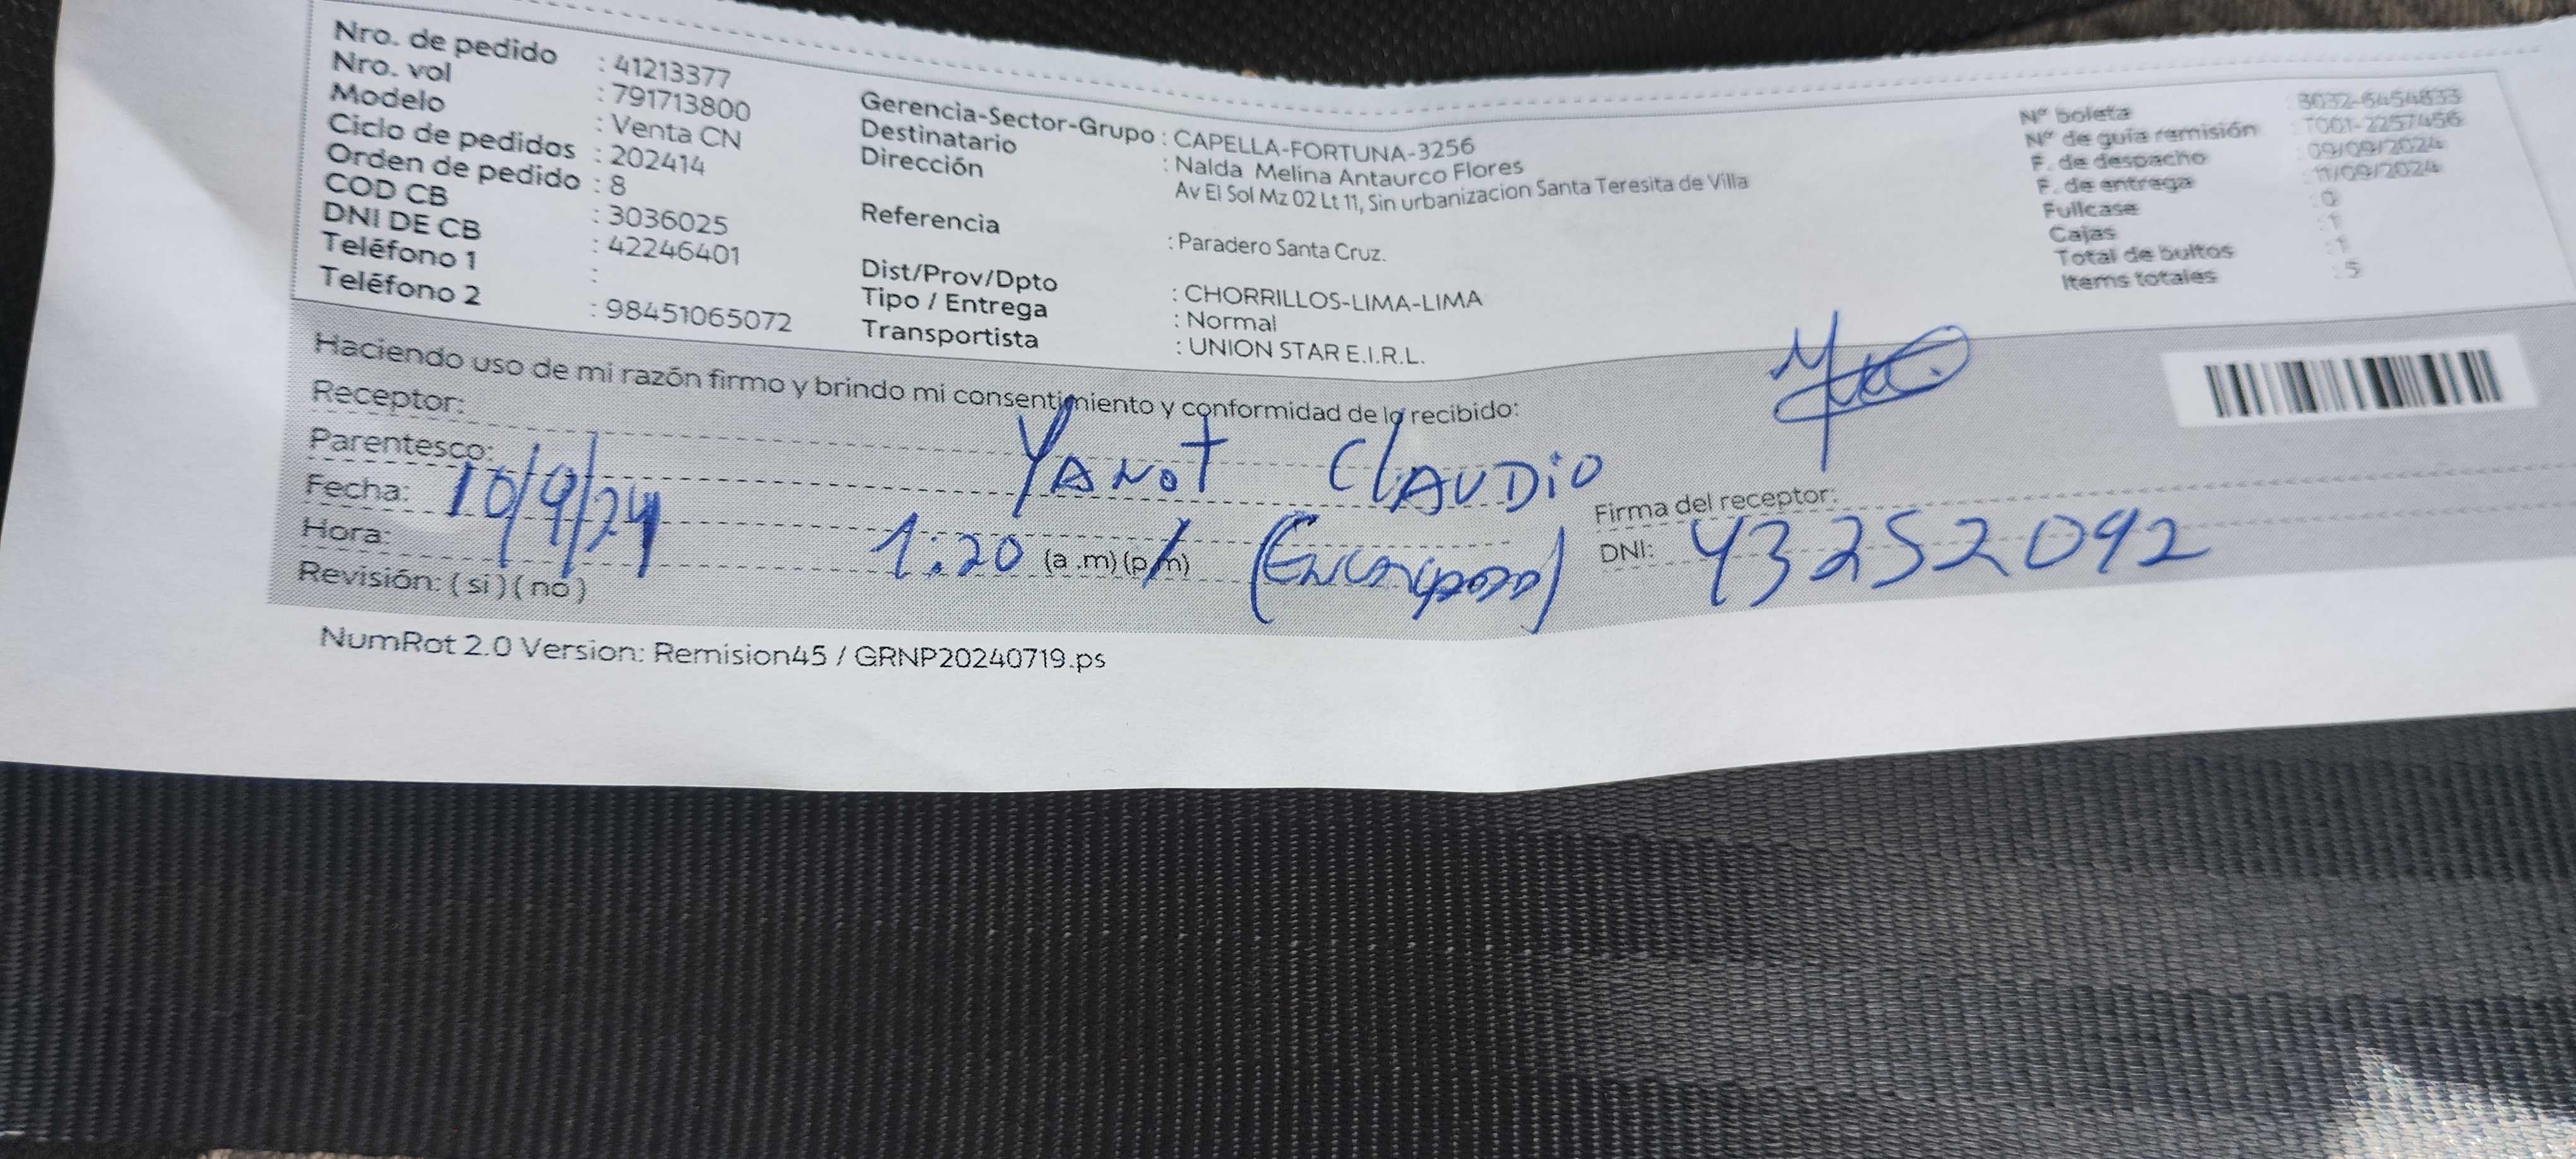 Nro. de pedido : 41213377
Nro. vol : 791713800
Modelo : Venta CN
Ciclo de pedidos : 202414
Orden de pedido : 8
COD CB : 3036025
DNI DE CB : 42246401
Teléfono 1 :
Teléfono 2 : 98451065072
Gerencia-Sector-Grupo : CAPELLA-FORTUNA-3256
Destinatario : Nalda Melina Antaurco Flores
Dirección Av El Sol Mz 02 Lt 11, Sin urbanizacion Santa Teresita de Villa
Referencia : Paradero Santa Cruz.
Dist/Prov/Dpto : CHORRILLOS-LIMA-LIMA
Tipo / Entrega : Normal
Transportista : UNION STAR E.I.R.L.
Nº boleta
Nº de guía remisión : T001-2257456
F. de despacho : 09/09/2024
F. de entrega : 11/09/2024
Fullcase : 0
Cajas : 1
Total de bultos : 1
Items totales : 5
Haciendo uso de mi razón firmo y brindo mi consentimiento y conformidad de lo recibido:
Receptor: YANOT CLAUDIO
Parentesco:
Fecha: 10/9/24
Firma del receptor:
Hora: 1:20 (a .m) (p.m)
DNI: 43252092
Revisión: ( si ) ( no )
NumRot 2.0 Version: Remision45 / GRNP20240719.ps